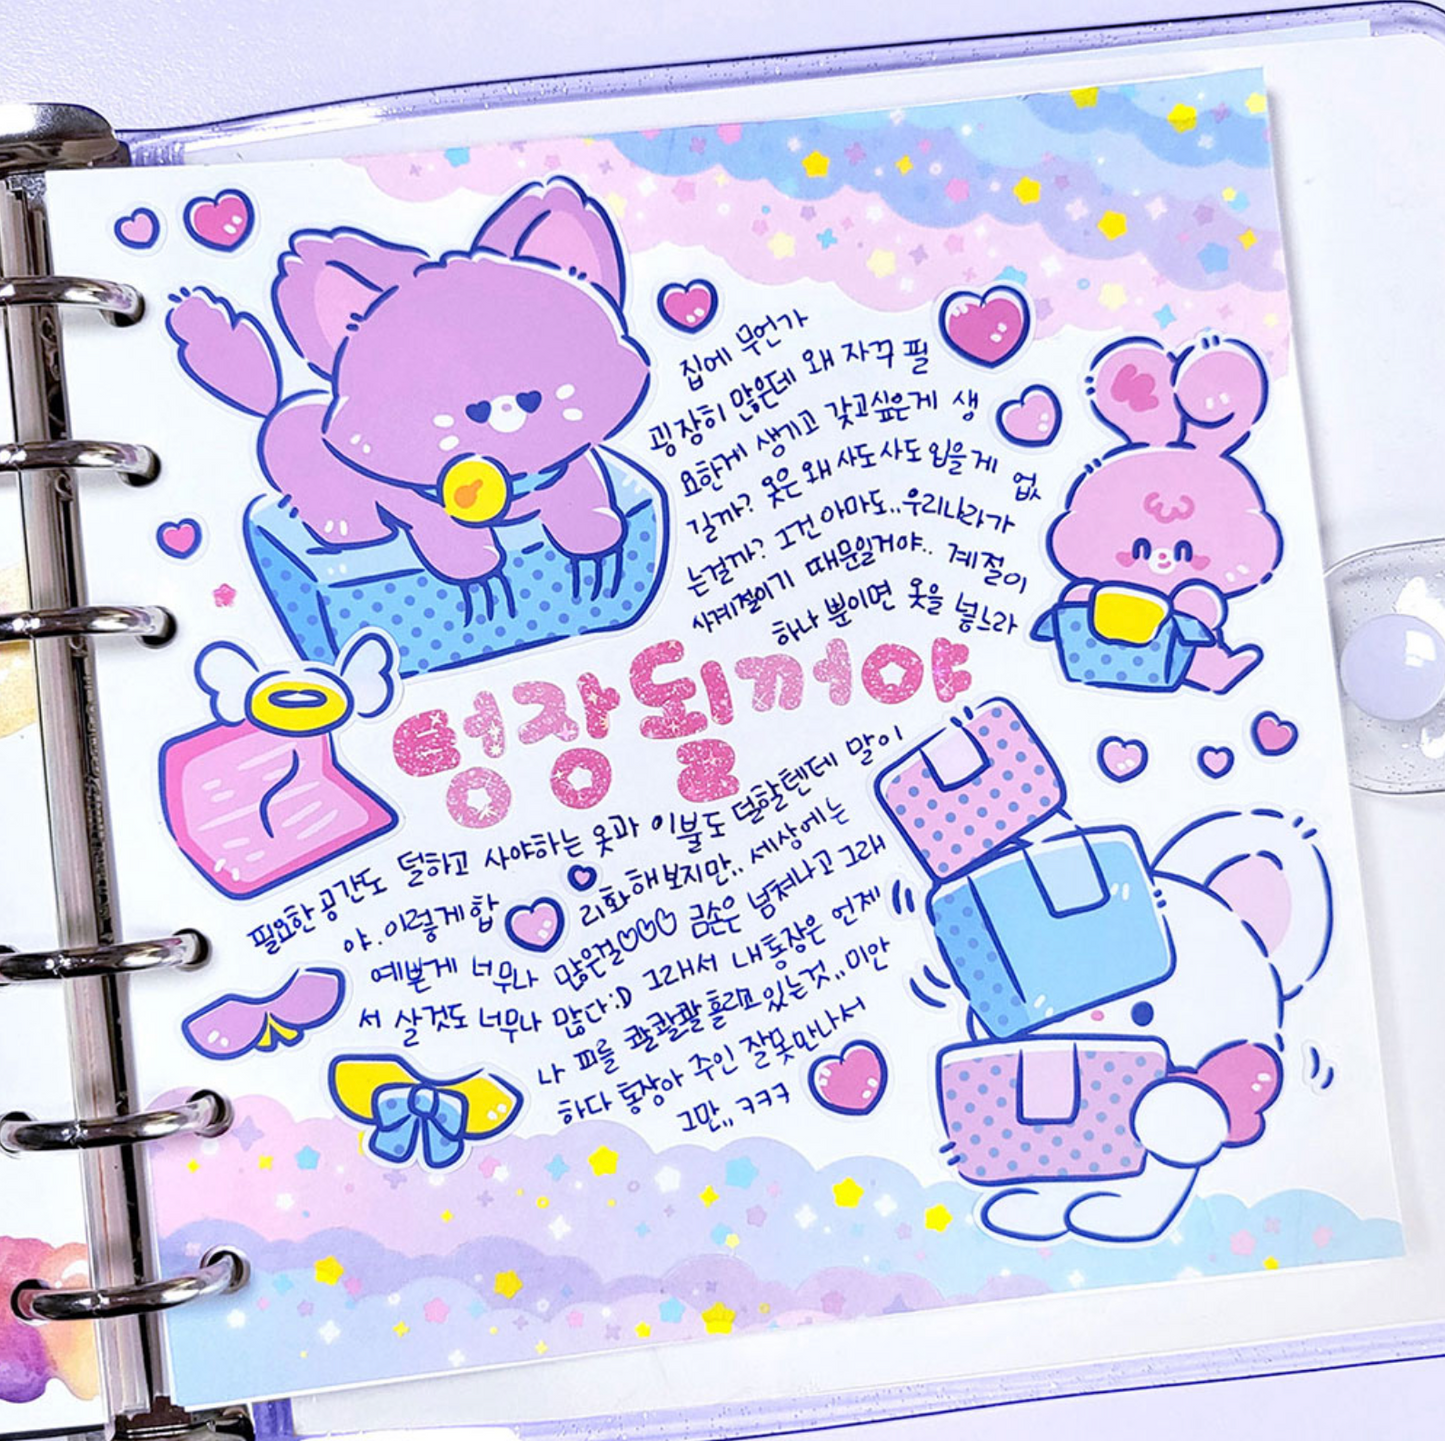 집에 무언가
굉장히 많은데 왜 자꾸 필
요한게 생기고 갖고싶은게 생
길까? 옷은 왜 사도사도 입을게 없
는걸까? 그건 아마도..우리나라가
사계절이기 때문일거야.. 계절이
하나 뿐이면 옷을 넣느라
텅장될꺼야
필요한 공간도 덜하고 사야하는 옷과 이불도 덜할텐데 말이
야. 이렇게 합 리화해보지만.. 세상에는
예쁜게 너무나 많은걸♡♡♡ 금손은 넘쳐나고 그래
서 살것도 너무나 많다:D 그래서 내통장은 언제
나 피를 콸콸콸 흘리고있는것..미안
하다 통장아 주인 잘못만나서
그만,, ㅋㅋㅋ